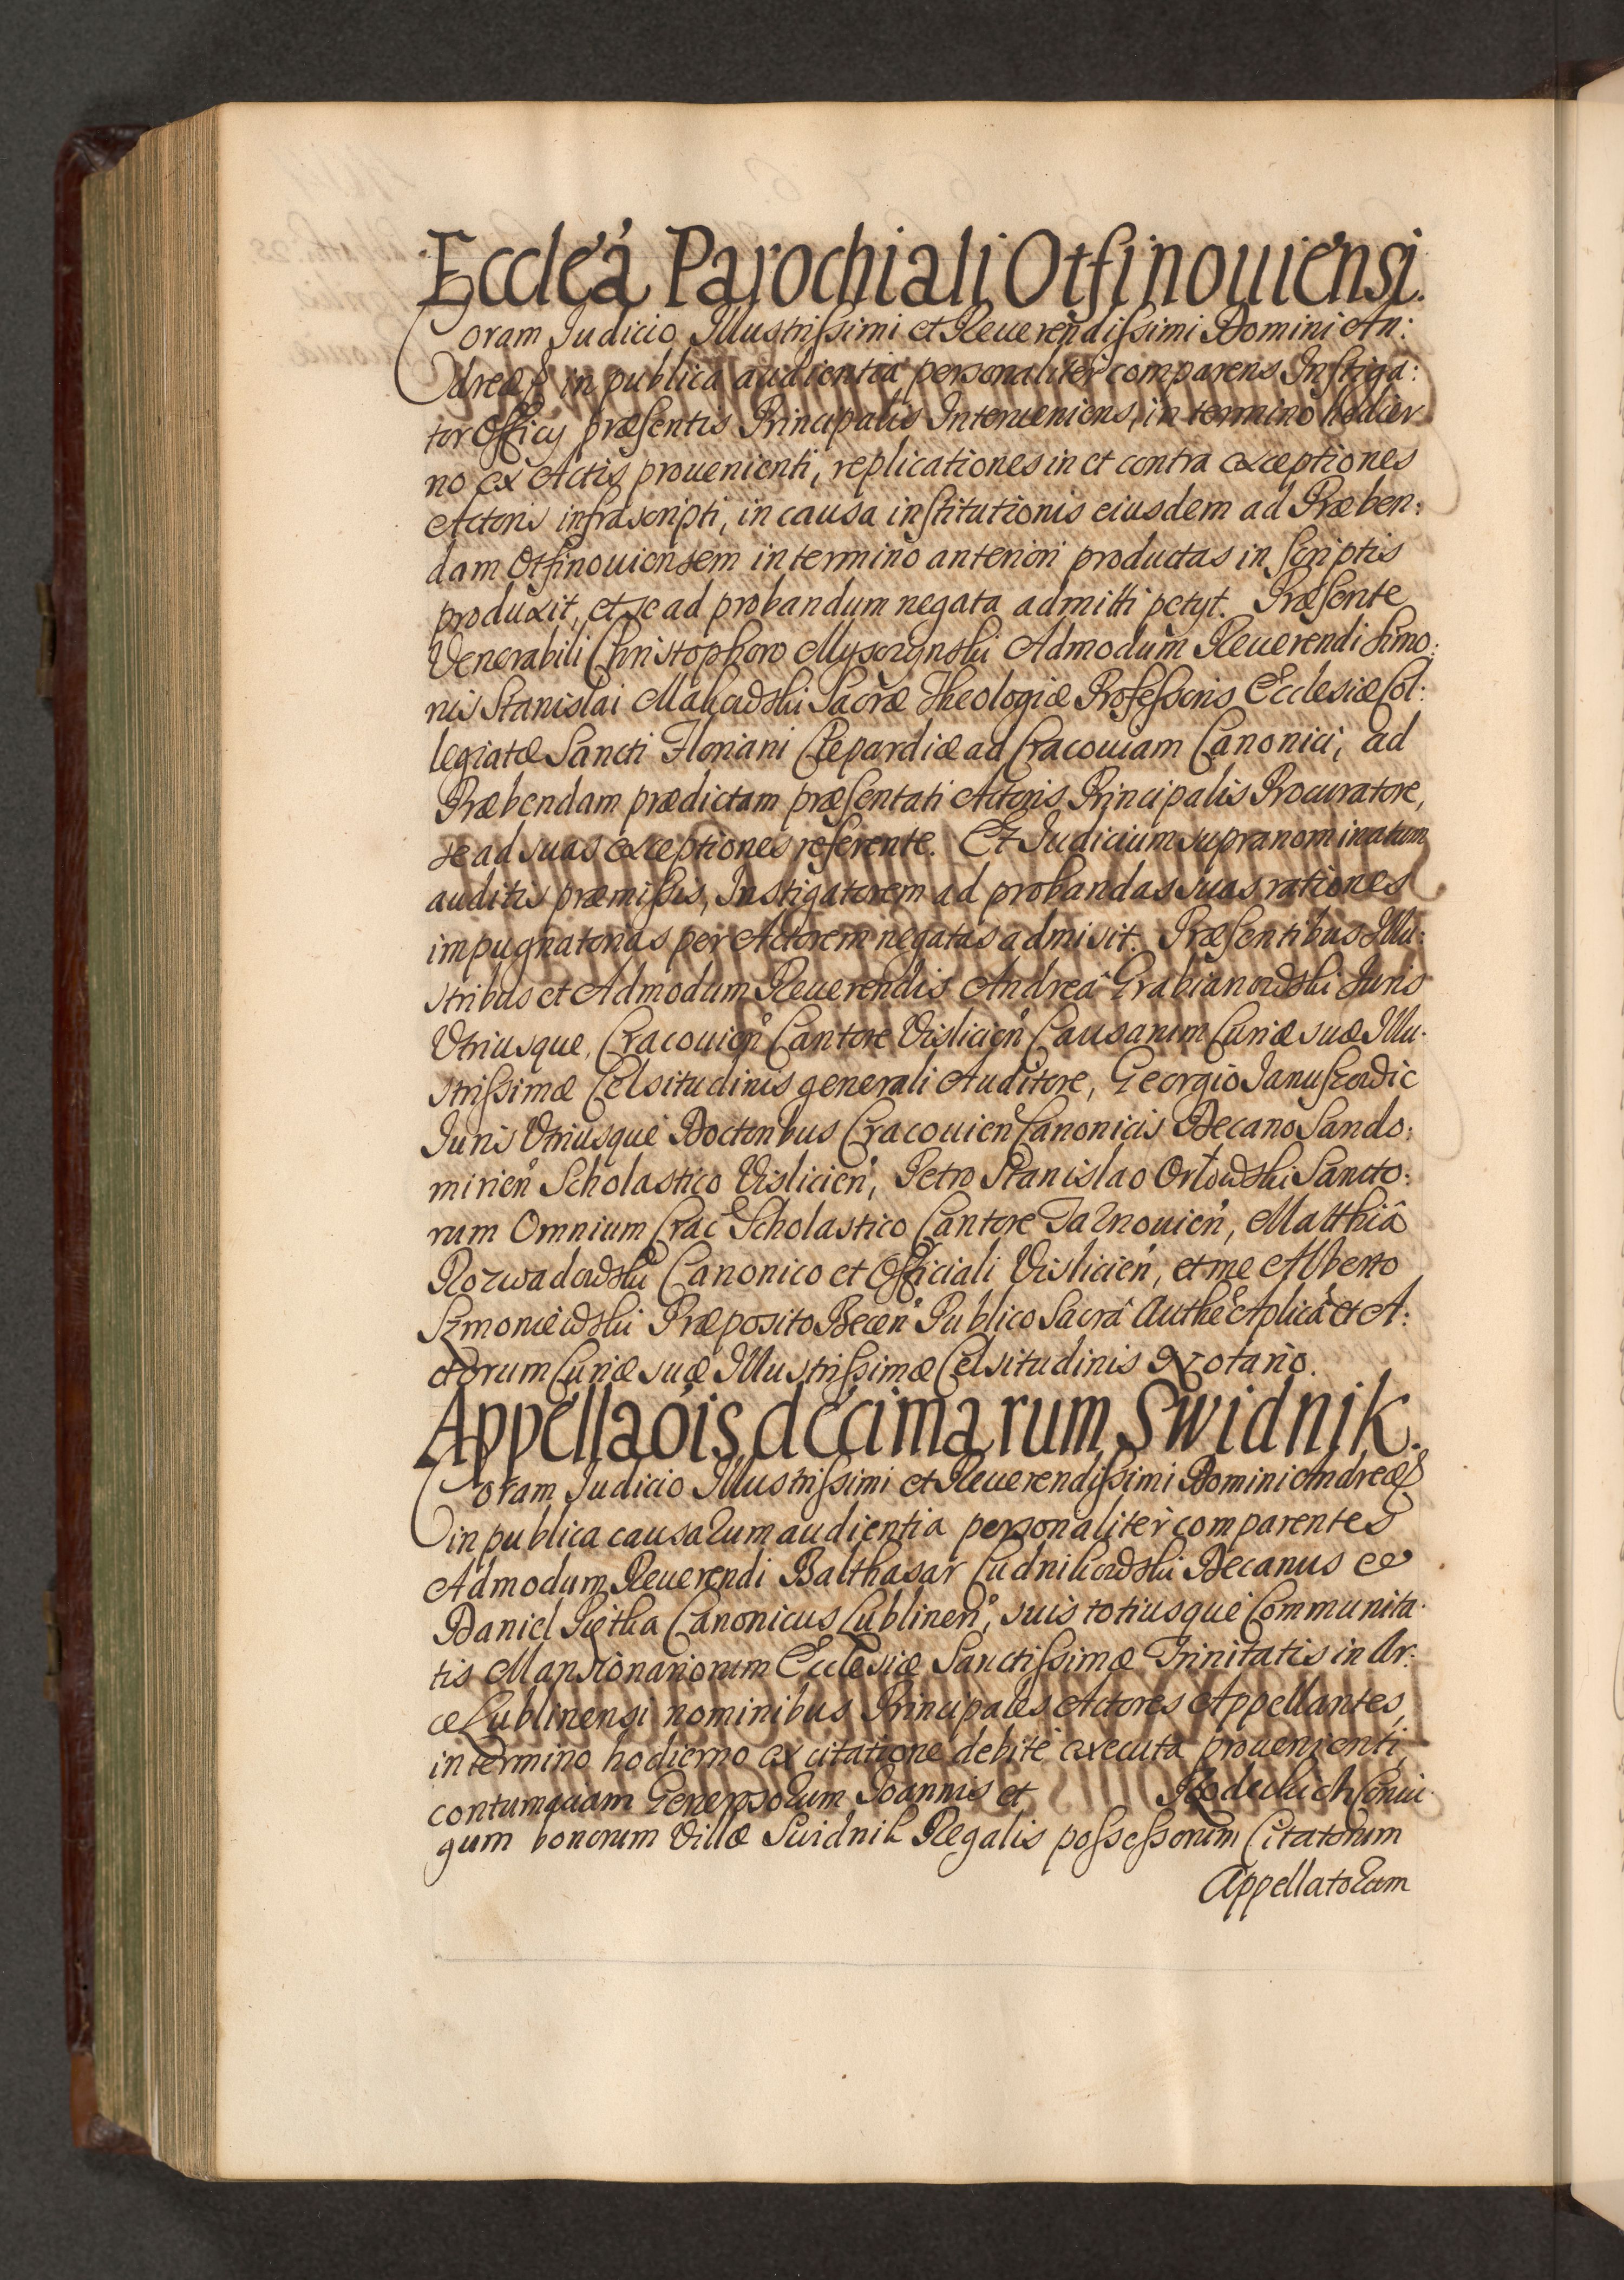 Eccleâ Parochiali Otfinouiensi.
Coram Judicio Illustrissimi et Reuerendissimi Domini An:
dreæ & in publica audientia personaliter comparens Instiga:
tor Officy præsentis Principalis Interueniens, in termino hodier
no ex Actis prouenienti, replicationes in et contra exceptiones
Actoris infrascripti, in causa institutionis eiusdem ad Præben:
dam Otfinouiensem in termino anteriori productas in scriptis
produxit, et se ad probandum negata admitti petyt. Præsente
Venerabili Christophoro Admodum Reuerendi Simo:
nis Stanislai Makowski Sacræ Theologiæ Professoris Ecclesiæ Col:
legiatæ Sancti Floriani Clepardiæ ad Cracouiam Canonici, ad
Præbendam prædictam præsentati Actoris Principalis Procuratore,
se ad suas exceptiones referente. Et Judicium supranominatum
auditis præmissis, Instigatorem ad probandas suas rationes
impugnatorias per Actorem negatas admisit. Præsentibus Illu:
stribus et Admodum Reuerendis Andreâ Grabianowski Juris
Vtriusque, Cracouien Cantore Vislicien Causarum Curiæ suæ Illu:
strissimæ Celsitudinis generali Auditore, Georgio Januszowic
Juris Vtriusque Doctoribus Cracouien Canonicis Decano Sando:
mirien Scholastico Vislicien, Petro Stanislao Orłowski Sancto:
rum Omnium Crac Scholastico Cantore Tarnouien, Matthiâ
Rozwadowski Canonico et Officiali Vislicien, et me Alberto
Præposito Becen Publico Sacrâ Authe Aplicâ et A:
ctorum Curiæ suæ Illustrissimæ Celsitudinis Notario.
Appellaõis decimarum Swidnik.
Coram Judicio Illustrissimi et Reuerendissimi Domini Andreæ &
in publica causarum audientia personaliter comparentes
Admodum Reuerendi Balthasar Decanus et
Daniel Canonicus Lublinen, suis totiusque Communita:
tis Mansionariorum Ecclesiæ Sanctissimæ Trinitatis in Ar:
ce Lublinensi nominibus Principales Actores Appellantes,
in termino hodierno ex citatione debite executa prouenienti,
contumaciam Generosorum Joannis et Coniu:
gum bonorum Villæ Swidnik Regalis possessorum Citatorum
Appellatorum